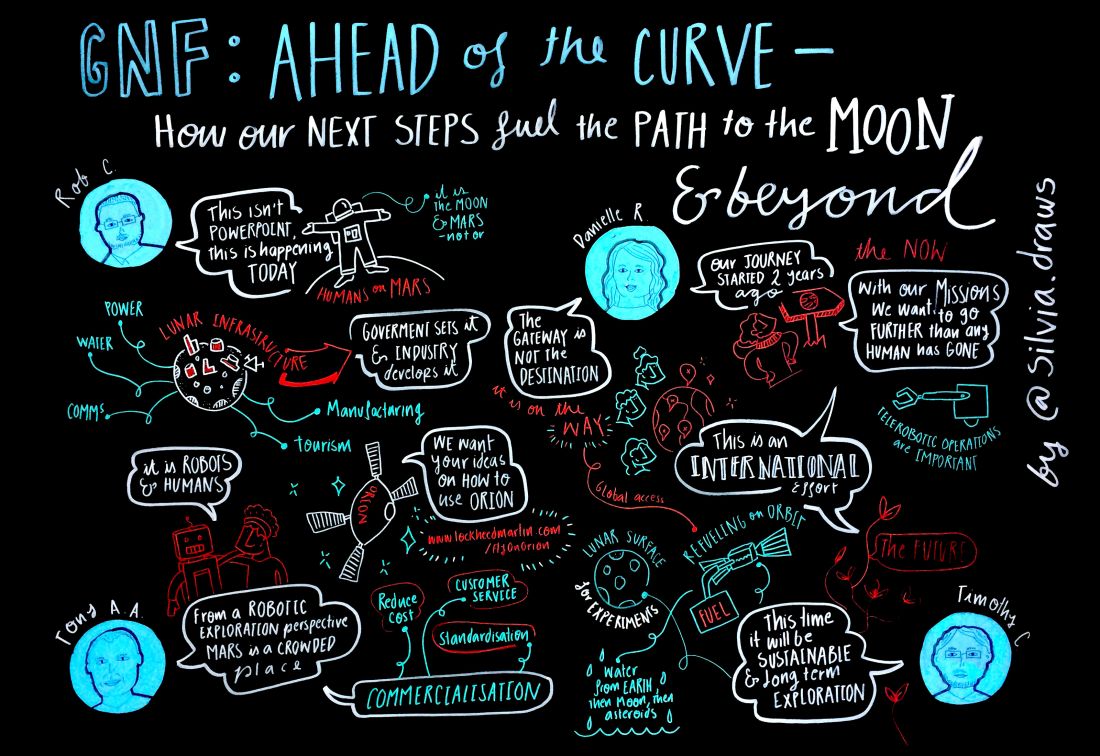 GNF: AHEAD of the CURVE –
How our NEXT STEPS fuel the PATH to the MOON
& beyond
by @silvia.draws
Rob C.
This isn't
POWERPOINT,
this is happening
TODAY
it is
the MOON
& MARS
- not or
HUMANS on MARS
Danielle R.
our JOURNEY
STARTED 2 years
ago
the NOW
With our Missions
we want to go
FURTHER than any
HUMAN has GONE
POWER
WATER
COMMS
LUNAR INFRASTRUCTURE
Manufacturing
tourism
GOVERMENT SETS it
& INDUSTRY
develops it
The
GATEWAY is
NOT the
DESTINATION
it is on the
WAY
TELEROBOTIC OPERATIONS
are IMPORTANT
This is an
INTERNATIONAL
Effort
it is ROBOTS
& HUMANS
ORION
We want
your ideas
on HOW to
use ORION
www.lockheedmartin.com
/flyOnOrion
Global access
LUNAR SURFACE
for EXPERIMENTS
REFUELING on ORBIT
FUEL
The FUTURE
Tony A.A.
From a ROBOTIC
EXPLORATION perspective
MARS is a CROWDED
place
Reduce
COST
CUSTOMER
SERVICE
Standardisation
COMMERCIALISATION
Water
from EARTH,
then Moon, then
asteroids
This time
it will be
SUSTAINABLE
& long term
EXPLORATION
Timothy C